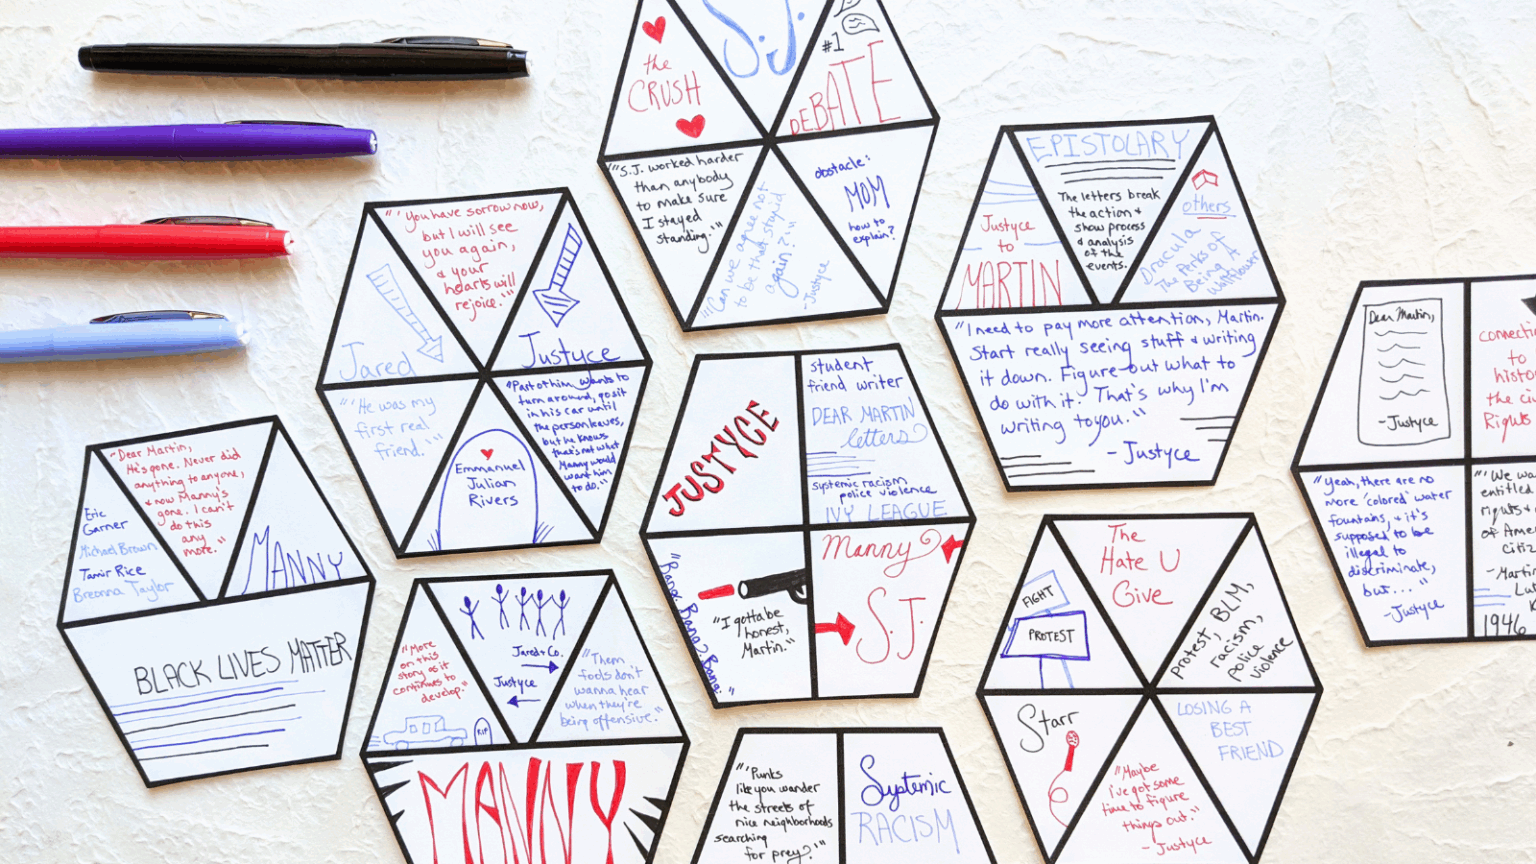 the
CRUSH
S.J.
#1
DEBATE
"S.J. worked harder
than anybody
to make sure
I stayed
standing."
"Can we agree not
to be that stupid
again?"
-Justyce
obstacle:
MOM
how to
explain?
"'You have sorrow now,
but I will see
you again,
& your
hearts will
rejoice.'"
Jared
Justyce
"'He was my
first real
friend.'"
Emmanuel
Julian
Rivers
"Part of him wants to
turn around, go sit
in his car until
the person leaves,
but he knows
that's not what
Manny would
want him
to do."
EPISTOLARY
The letters break
the action &
show process
& analysis
of the
events.
Justyce
to
MARTIN
others
Dracula
The Perks of
Being A
Wallflower
"I need to pay more attention, Martin.
Start really seeing stuff & writing
it down. Figure out what to
do with it. That's why I'm
writing to you."
- Justyce
Dear Martin,
-Justyce
connecting
to
histor
the civ
Rights
"Yeah, there are no
more 'colored' water
fountains, & it's
supposed to be
illegal to
discriminate,
but..."
-Justyce
"'We wa
entitled
rights &
of Amer
citiz
-Martin
Lut
K
1946
"Dear Martin,
He's gone. Never did
anything to anyone,
& now Manny's
gone. I can't
do this
any
more."
Eric
Garner
Michael Brown
Tamir Rice
Breonna Taylor
MANNY
BLACK LIVES MATTER
JUSTYCE
student
friend writer
DEAR MARTIN
letters
systemic racism
police violence
IVY LEAGUE
"Bang. Bang. Bang."
"I gotta be
honest,
Martin."
Manny
S.J.
"More
on this
story as it
continues to
develop."
RIP
Jared + Co.
Justyce
"Them
fools don't
wanna hear
when they're
being offensive."
MANNY
The
Hate U
Give
FIGHT
PROTEST
protest, BLM,
racism,
police
violence
Starr
LOSING A
BEST
FRIEND
"Maybe
I've got some
time to figure
things out."
- Justyce
"'Punks
like you wander
the streets of
nice neighborhoods
searching
for prey?'"
Systemic
RACISM